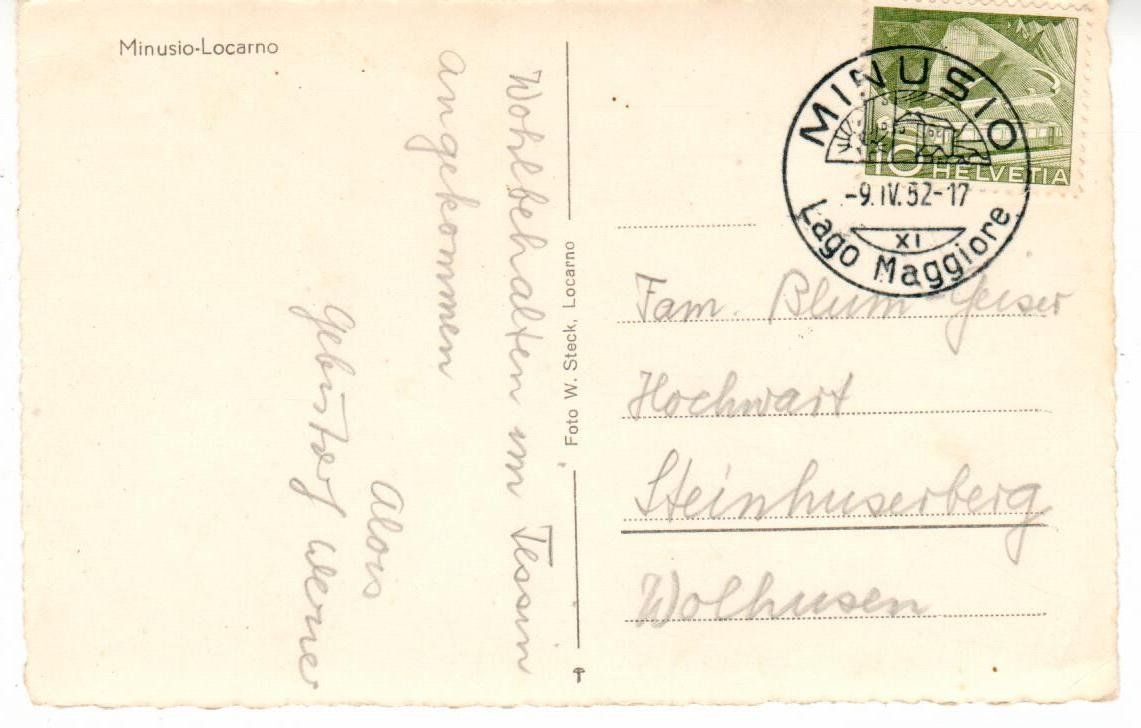 Minusio-Locarno
Wohlbehalten im Tessin
angekommen
Alois
Werner
Foto W. Steck, Locarno
10 HELVETIA
MINUSIO
-9.IV.52-17
XI
Lago Maggiore
Fam. Blum-Geiser
Hochwart
Steinhuserberg
Wolhusen